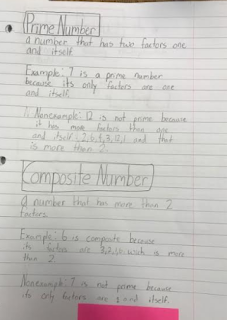 Prime Number
a number that has two factors one
and itself
Example: 7 is a prime number
because its only factors are one
and itself.
Nonexample: 12 is not prime because
it has more factors than one
and itself: 2,6,4,3,12,1 and that
is more than 2.
Composite Number
a number that has more than 2
factors.
Example: 6 is composite because
its factors are is more
than 2
Nonexample: 7 is not prime because
its only factors are 1 and itself.